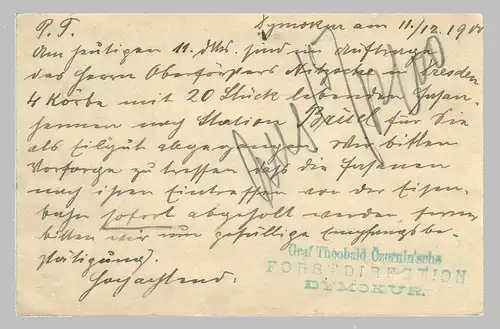 P. T. Dymokur am 11/12. 1900
Am heutigen 11. dMs. sind im Auftrage
des Herrn Oberförsters in Dresden
4 Körbe mit 20 Stück lebenden Fasan-
hennen nach Station Brüel für Sie
als Eilgut abgegangen. Wir bitten
Vorsorge zu treffen daß die Fasanen
nach ihren Eintreffen von der Eisen-
bahn sofort abgeholt werden, ferner
bitten wir um gefällige Empfangsbe-
stätigung.
Hochachtend:
Graf Theobald Czernin'sche
FORSTDIRECTION
DYMOKUR.